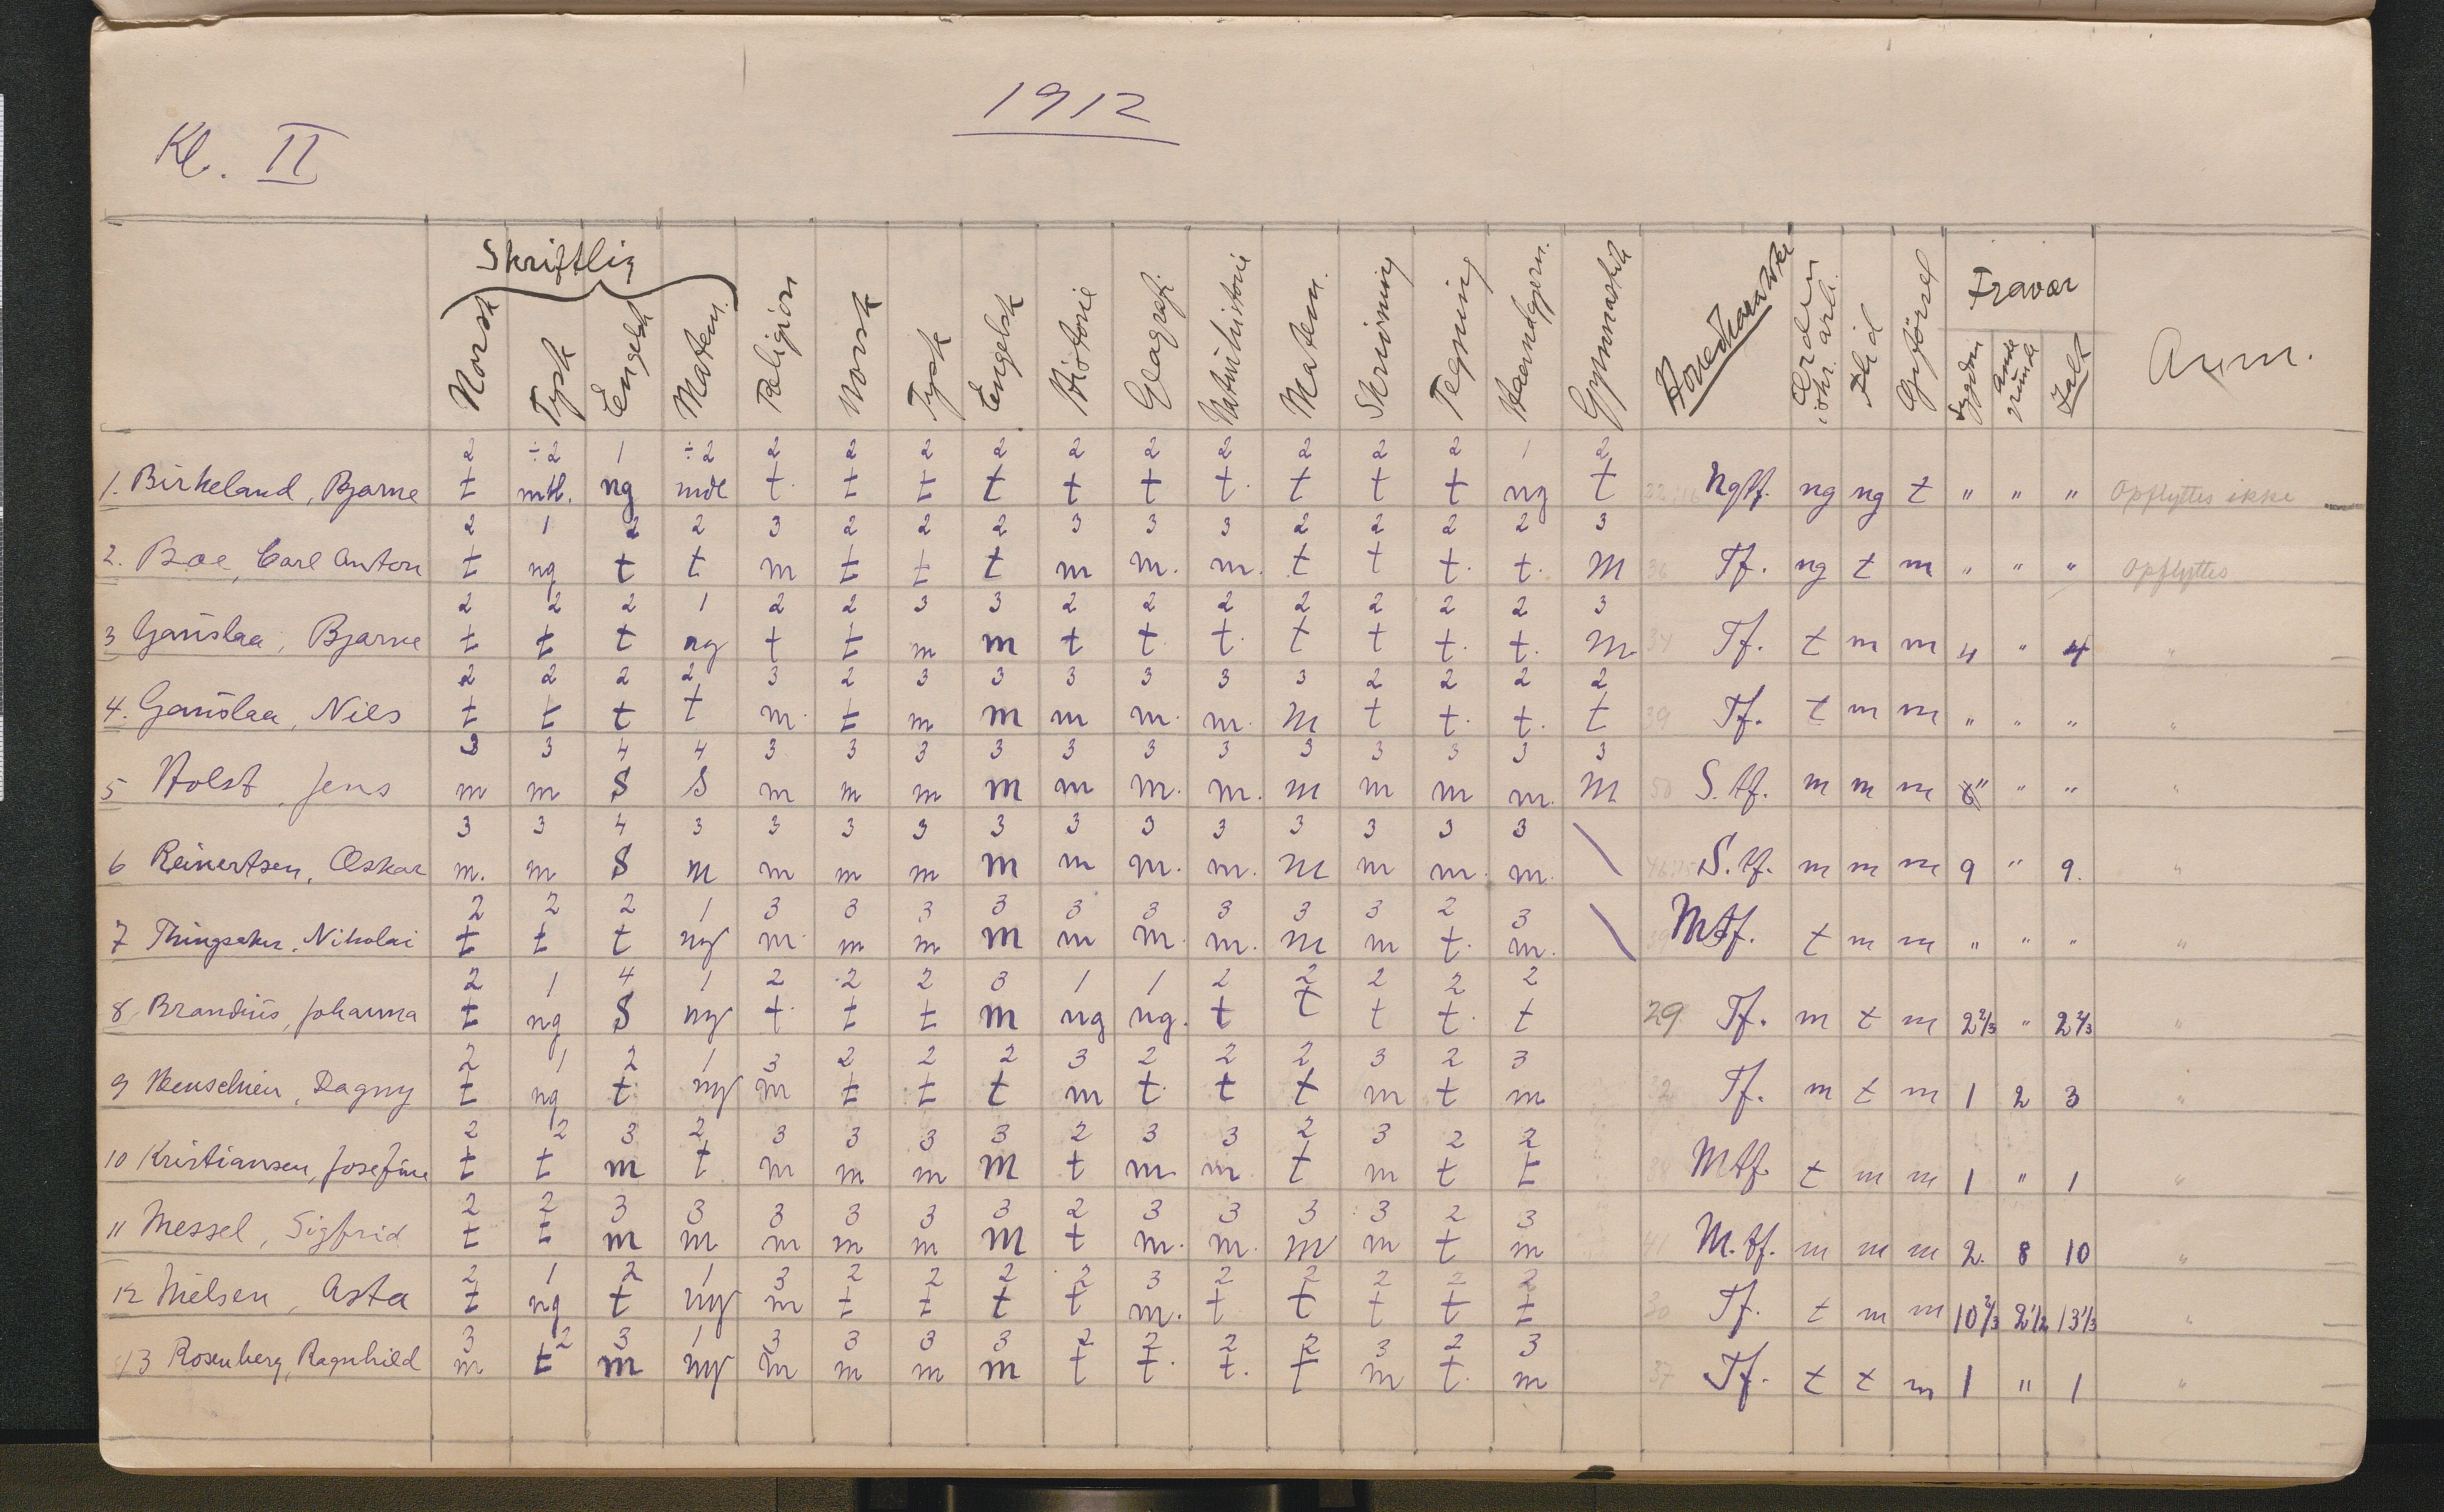 1912
Kl. II
Skriftlig
Norsk Tysk Engelsk Matem. Religion Norsk Tysk Engelsk Historie Geografi Naturhistorie Matem. Skrivning Tegning Haandgjern. Gymnastik Hovedkarakter Orden i skr. arb. Flid Opførsel Fravær Sygdom Andre grunde Ialt Anm.
2 ÷2 1 ÷2 2 2 2 2 2 2 2 2 2 2 1 2
1. Birkeland, Bjarne t mtl. ng mdl t. t t t t t t. t t t ng t 22:16 Ngtf. ng ng t " " " Opflyttes ikke
2 1 2 2 3 2 2 2 3 3 3 2 2 2 2 3
2. Boe, Carl Anton t ng t t m t t t m m. m. t t t. t. M 36 Tf. ng t m " " " Opflyttes
2 2 2 1 2 2 3 3 2 2 2 2 2 2 2 3
3 Gauslaa, Bjarne t t t ng t t m m t t. t. t t t. t. M. 34 Tf. t m m 4 " 4 "
2 2 2 2 3 2 3 3 3 3 3 3 2 2 2 2
4. Gauslaa, Niels t t t t m. t m m m m. m. M t t. t. t 39 Tf. t m m " " " "
3 3 4 4 3 3 3 3 3 3 3 3 3 3 3 3
5 Holst, Jens m m S S m m m m m m. m. m m m m. M 50 S.tf. m m m " " " "
3 3 4 3 3 3 3 3 3 3 3 3 3 3 3
6 Reinertsen, Oskar m. m S m m m m m m m. m. m m m. m. \ 46:15 S.tf. m m m 9 " 9. "
2 2 2 1 3 3 3 3 3 3 3 3 3 2 3
7 Thingsaker, Nikolai t t t ng m. m m m m m. m. m m t. m. \ 39 Mtf. t m m " " " "
2 1 4 1 2 2 2 3 1 1 2 2 2 2 2
8, Brandius, Johanna t ng S ng t. t t m ng ng. t t t t. t 29 Tf. m t m 2 2/3 " 2 2/3 "
2 1 2 1 3 2 2 2 3 2 2 2 3 2 3
9 Henschien, Dagny t ng t ng m t t t m t. t t m t m 32 Tf. m t m 1 2 3 "
2 2 3 2 3 3 3 3 2 3 3 2 3 2 2
10 Kristiansen, Josefine t t m t m m m m t m. m. t m t t 38 Mtf. t m m 1 " 1 "
2 2 3 3 3 3 3 3 2 3 3 3 3 2 3
11 Messel, Sigfrid t t m m m m m m t m. m. m m t m 41 M.tf. m m m 2. 8 10 "
2 1 2 1 3 2 2 2 2 3 2 2 2 2 2
12 Nielsen, Asta t ng t ng m t t t t m. t t t t t 30 Tf. t m m 10 2/3 2 1/2 13 1/3 "
3 2 3 1 3 3 3 3 2 2 2 2 3 2 3
13 Rosenberg, Ragnhild m t m ng m m m m t t. t. t m t. m 37 Tf. t t m 1 " 1 "